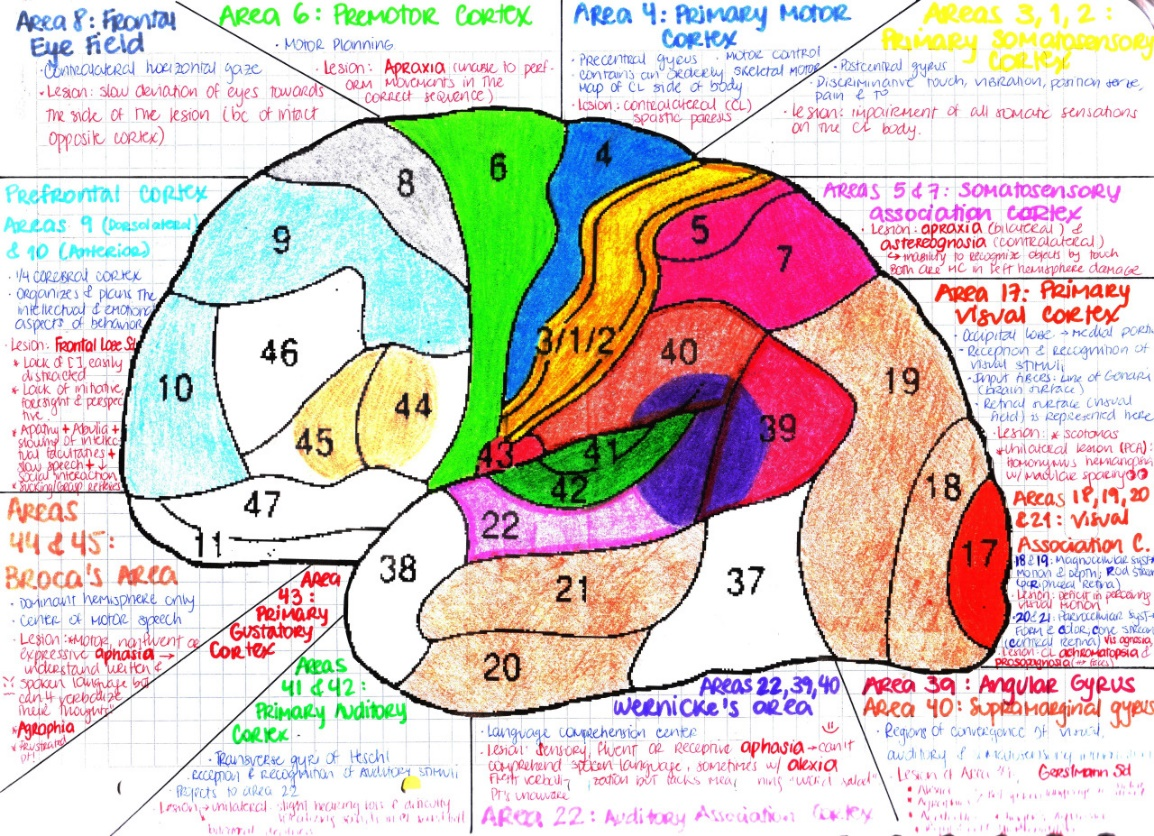 Area 8: Frontal
Eye Field
· Contralateral horizontal gaze
· Lesion: slow deviation of eyes towards
the side of the lesion (bc of intact
opposite cortex)
Area 6: Premotor Cortex
· Motor Planning
· Lesion: Apraxia (unable to perf-
orm movements in the
correct sequence)
Area 4: Primary Motor
Cortex
· Precentral gyrus · Motor control
· contains an orderly skeletal motor
map of CL side of body
· Lesion: contralateral (CL)
spastic paresis
Areas 3, 1, 2:
Primary Somatosensory
Cortex
· Postcentral gyrus
· Discriminative touch, vibration, position sense,
pain & T°
· Lesion: impairement of all somatic sensations
on the CL body.
Prefrontal Cortex
Areas 9 (Dorsolateral)
& 10 (Anterior)
· 1/4 cerebral cortex
· Organizes & plans the
intellectual & emotional
aspects of behavior
· Lesion: Frontal Lobe
* Lack of [ ], easily
distracted
* Lack of initiative,
foresight & perspec-
tive
* Apathy + Abulia +
slowing of intellec-
tual facultaties +
slow speech + ↓
social interaction
* sucking/grasp reflexes
Areas 5 & 7: Somatosensory
association cortex
· Lesion: apraxia (bilateral) &
astereognosia (contralateral)
↳ inability to recognize objects by touch
Both are MC in left hemisphere damage
Area 17: Primary
Visual Cortex
· Occipital lobe → medial
· Reception & Recognition of
visual stimuli
· Input fibers: Line of Genari
(brain surface)
· Retinal surface (visual
field) is represented here
· Lesion: * scotomas
* Unilateral lesion (PCA):
homonymus hemianopia
w/ macular sparing
Areas 18, 19, 20
& 21: Visual
Association C.
18 & 19: Magnocellular
motion & depth; Rod
(peripheral retina)
Lesion: deficit in perceiving
visual motion
20 & 21: Parvocellular
Form & color, cone stream
(central retina) vis agnosia
Lesion: CL achromatopsia &
prosopagnosia (→ faces)
8
6
4
9
5
7
3/1/2
46
40
10
19
44
45
39
43
41
42
18
47
22
17
11
38
21
37
20
Areas
44 & 45:
Broca's Area
· Dominant hemisphere only
· Center of motor speech
· Lesion: Motor, nonfluent or
expressive aphasia →
understand written &
spoken language but
can't verbalize
their thoughts
* Agraphia
* frustrated
pt!
Area
43:
Primary
Gustatory
Cortex
Areas
41 & 42:
Primary Auditory
Cortex
· Transverse gyri of Heschl
· Reception & Recognition of Auditory stimuli
· Projects to area 22
· Lesion → unilateral: slight hearing loss & difficulty
Areas 22, 39, 40
Wernicke's area
· Language comprehension center
· Lesion: Sensory, fluent or receptive aphasia → can't
comprehend spoken language, sometimes w/ alexia
but lacks "word salad"
Pt's unaware
Area 22: Auditory Association Cortex
Area 39: Angular Gyrus
Area 40: Supramarginal gyrus
· Regions of convergence of visual,
auditory &
· Lesion of Area Gerstmann Sd